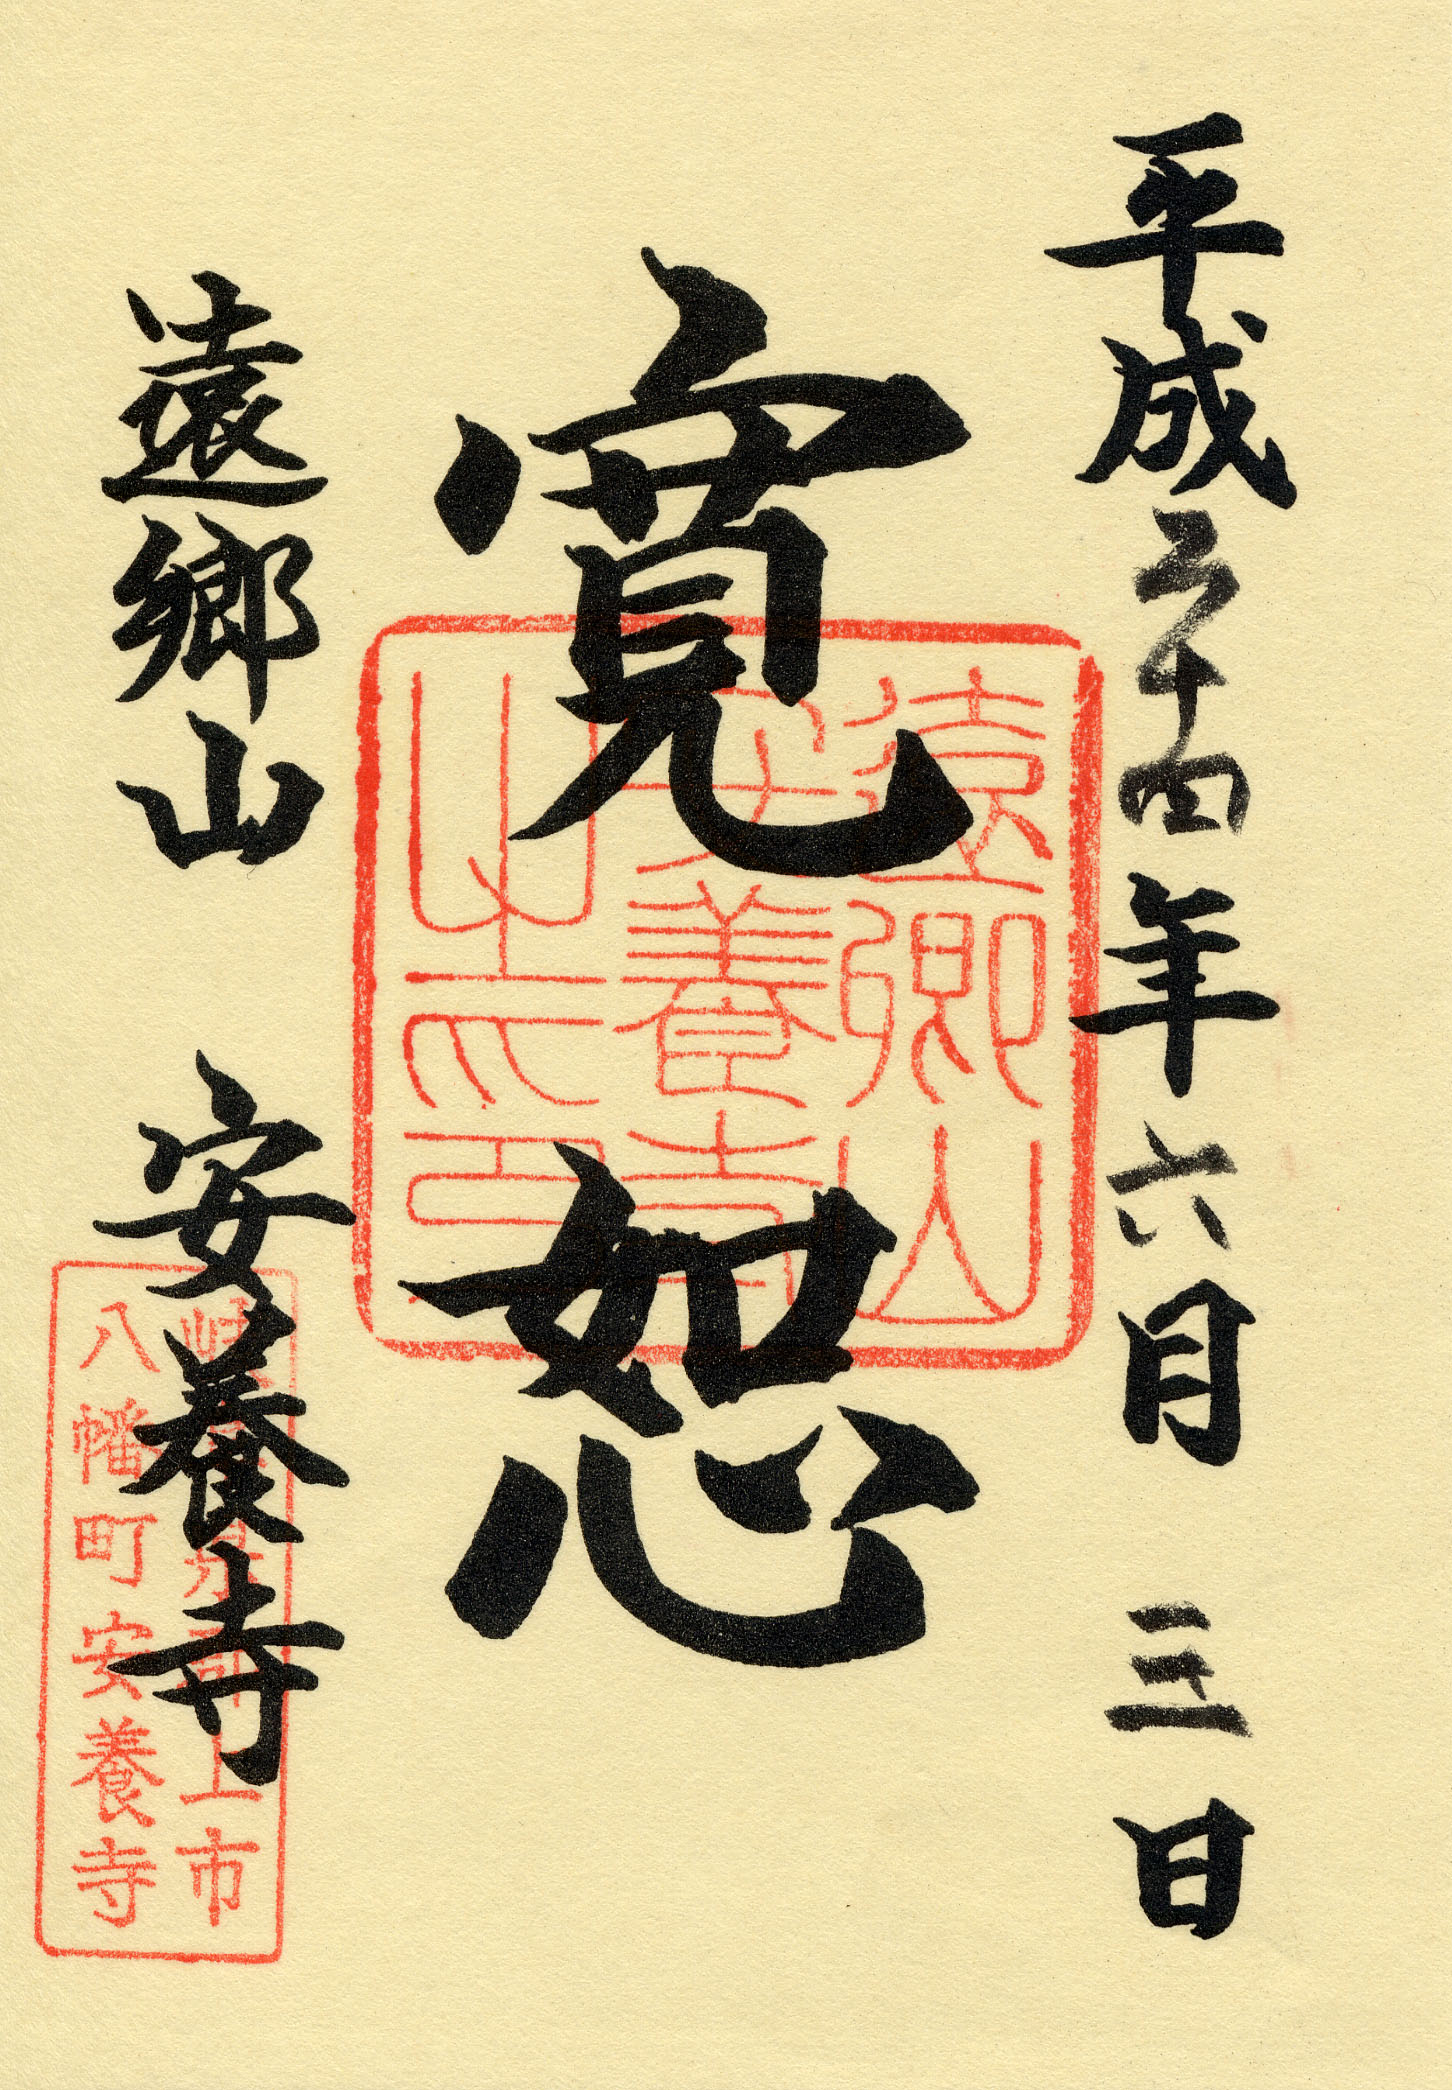 平成二十四年六月三日
寛恕
遠郷山
安養寺
之印
遠郷山 安養寺
県郡上市
八幡町安養寺